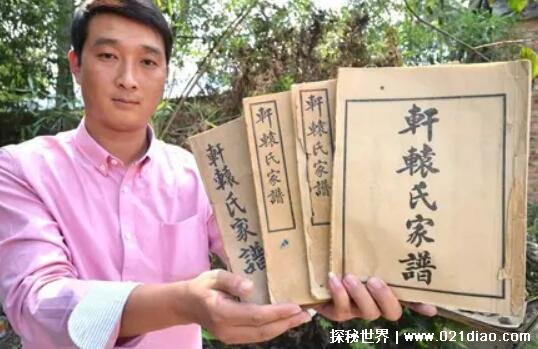 軒轅氏家譜
軒轅氏家譜
軒轅氏家譜
軒轅氏家譜
探秘世界｜www.021diao.com